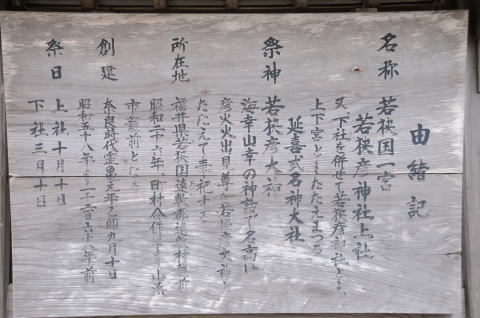 由緒記
名称 若狭国一宮
若狭彦神社上社
又、下社を併せて若狭彦神社とよぶ
上下宮とも
延喜式名神大社
祭神 若狭彦大神
海幸山幸の神話で名高い
彦火火出見尊を若狭彦大神と
たたえて奉祀す
所在地 福井県若狭国遠敷郡遠敷村龍前
昭和二十六年、町村合併
市龍前となる
創建 奈良時代霊亀元年乙卯九月十日
昭和五十八年より
祭日 上社十月十日
下社三月十日